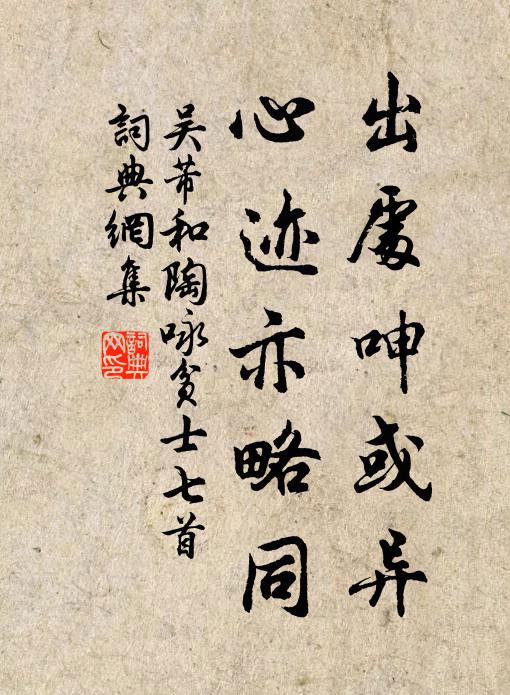 出處呻或异
心迹亦略同
吴芾和陶咏贫士七首
詞典網集
詞典網印